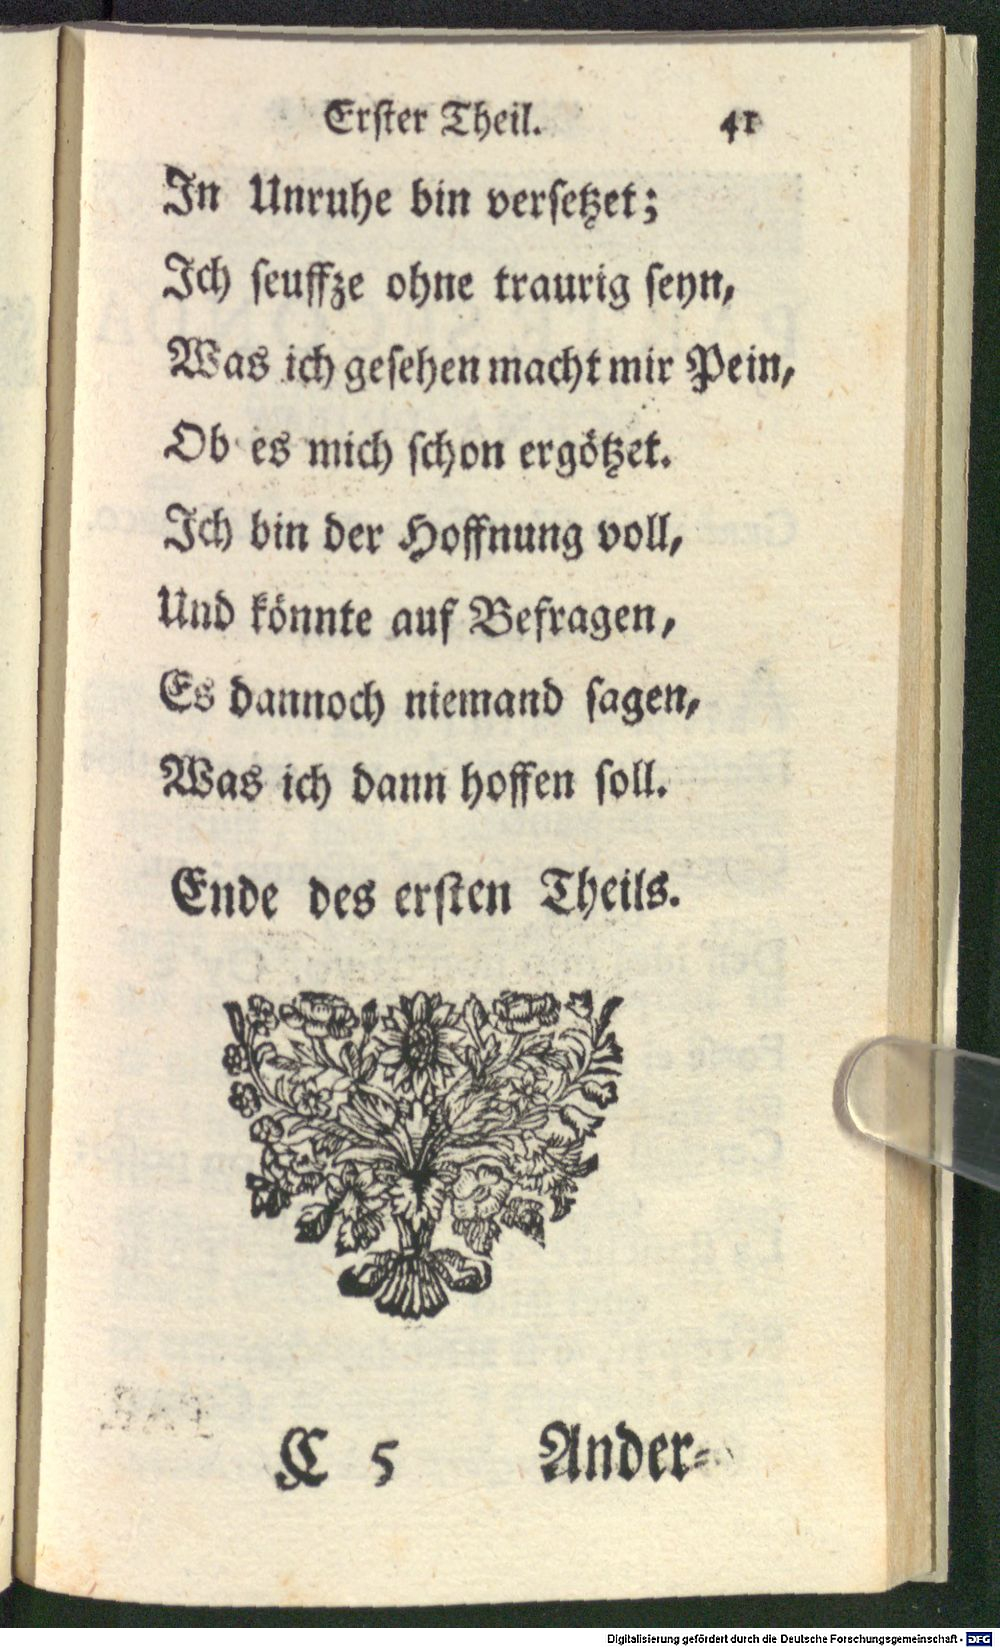 Erſter Theil. 41
In Unruhe bin verſetzet;
Ich ſeuffze ohne traurig ſeyn,
Was ich geſehen macht mir Pein,
Ob es mich ſchon ergötzet.
Ich bin der Hoffnung voll,
Und könnte auf Befragen,
Es dannoch niemand ſagen,
Was ich dann hoffen ſoll.
Ende des erſten Theils.
C 5 Ander-
Digitalisierung gefördert durch die Deutsche Forschungsgemeinschaft - DFG